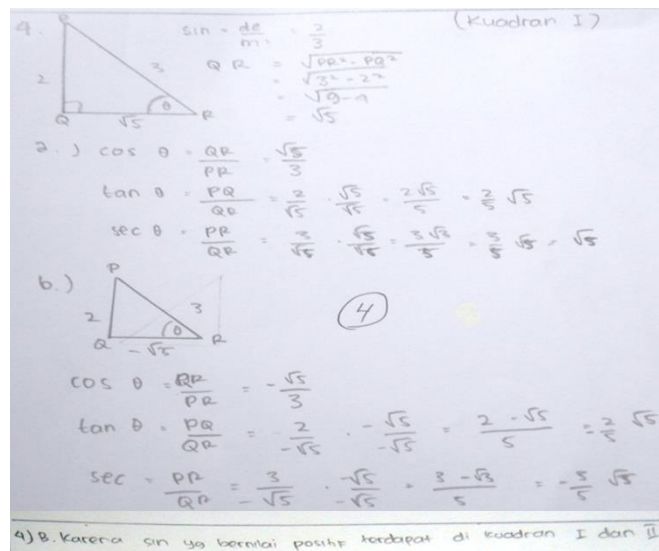 4. P (kuadran I)
sin = de/mi = 2/3
2 3 QR = √PR² - PQ²
= √3² - 2²
= √9-4
Q √5 θ R = √5
a.) cos θ = QR/PR = √5/3
tan θ = PQ/QR = 2/√5 . √5/√5 = 2√5/5 = 2/5 √5
sec θ = PR/QR = 3/√5 . √5/√5 = 3√3/5 = 3/5 √5 = √5
b.) P
2 3 4
Q -√5 θ R
cos θ = QR/PR = -√5/3
tan θ = PQ/QR = 2/-√5 . -√5/-√5 = 2 -√5/5 = 2/5 √5
sec = PR/QR = 3/-√5 . -√5/-√5 = 3 -√3/5 = -3/5 √5
4) B. Karena sin yg bernilai positif terdapat di kuadran I dan II